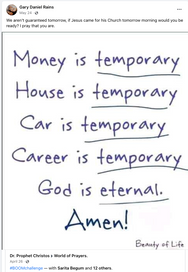 Gary Daniel Rains
Nov 24
We aren't guaranteed tomorrow, if Jesus came for his Church tomorrow morning would you be
ready? I pray that you are.
Money is temporary
House is temporary
Car is temporary
Career is temporary
God is eternal.
Amen!
Beauty of Life
Dr. Prophet Christos ▸ World of Prayers.
April 29
#BOOMchallenge — with Sarita Begum and 12 others.